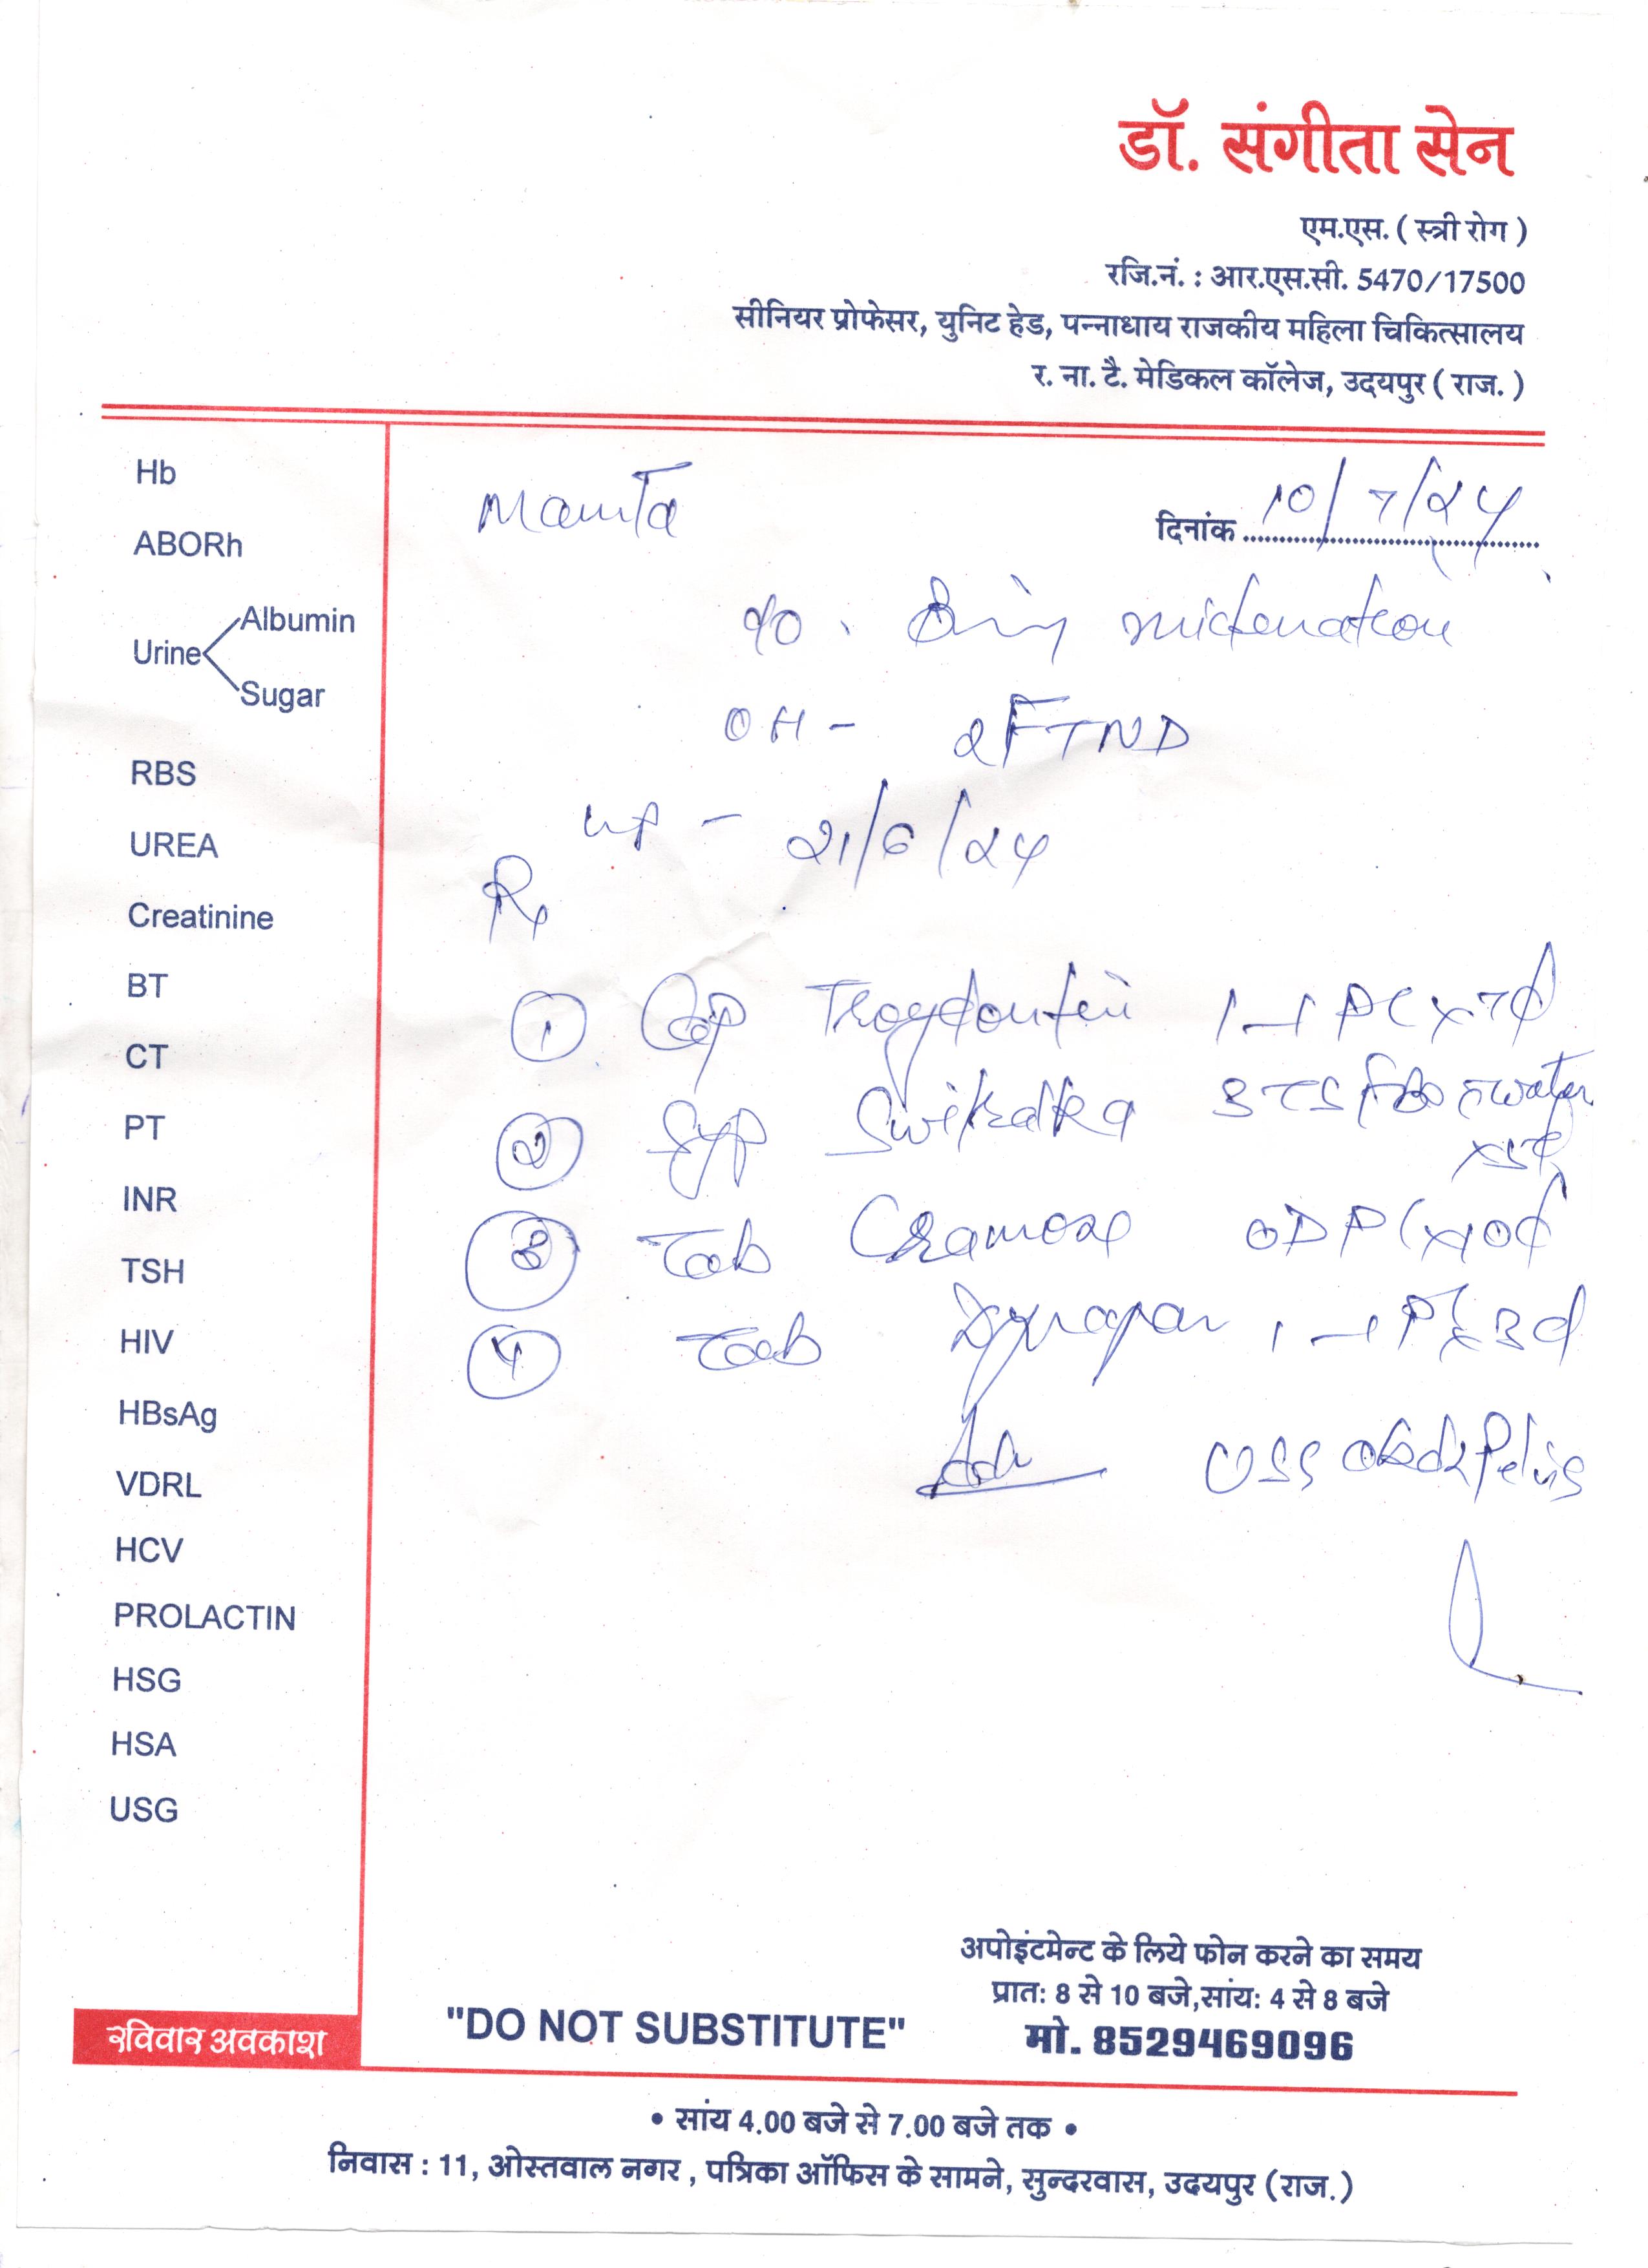 डॉ. संगीता सेन
एम.एस. ( स्त्री रोग )
रजि.नं. : आर.एस.सी. 5470/17500
सीनियर प्रोफेसर, युनिट हेड, पन्नाधाय राजकीय महिला चिकित्सालय
र. ना. टै. मेडिकल कॉलेज, उदयपुर ( राज. )
Mamta
दिनांक 10/7/24
Hb
ABORh
Urine
Albumin
Sugar
RBS
UREA
Creatinine
BT
CT
PT
INR
TSH
HIV
HBsAg
VDRL
HCV
PROLACTIN
HSG
HSA
USG
c/o micturation
OH - 2FTND
- 21/6/24
Rx
① Cap 1-1 PC x 7d
② Syp water x 5d
③ Tab OD PC x 10d
④ Tab 1-1 PC 3d
Adv Pelvis
अपोइंटमेन्ट के लिये फोन करने का समय
प्रात: 8 से 10 बजे,सांय: 4 से 8 बजे
"DO NOT SUBSTITUTE"
मो. 8529469096
रविवार अवकाश
• सांय 4.00 बजे से 7.00 बजे तक •
निवास : 11, ओस्तवाल नगर , पत्रिका ऑफिस के सामने, सुन्दरवास, उदयपुर (राज.)